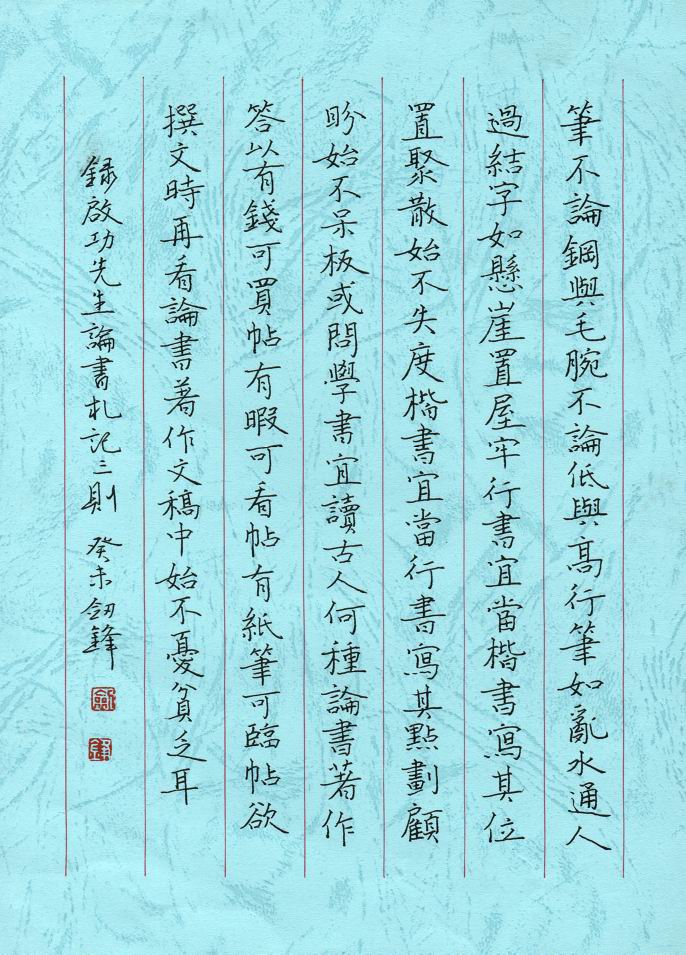 筆不論鋼與毛腕不論低與高行筆如亂水通人
過結字如懸崖置屋牢行書宜當楷書寫其位
置聚散始不失度楷書宜當行書寫其點劃顧
盼始不呆板或問學書宜讀古人何種論書著作
答以有錢可買帖有暇可看帖有紙筆可臨帖欲
撰文時再看論書著作文稿中始不憂貧乏耳
錄啟功先生論書札記三則 癸未劒鋒
劒
鋒